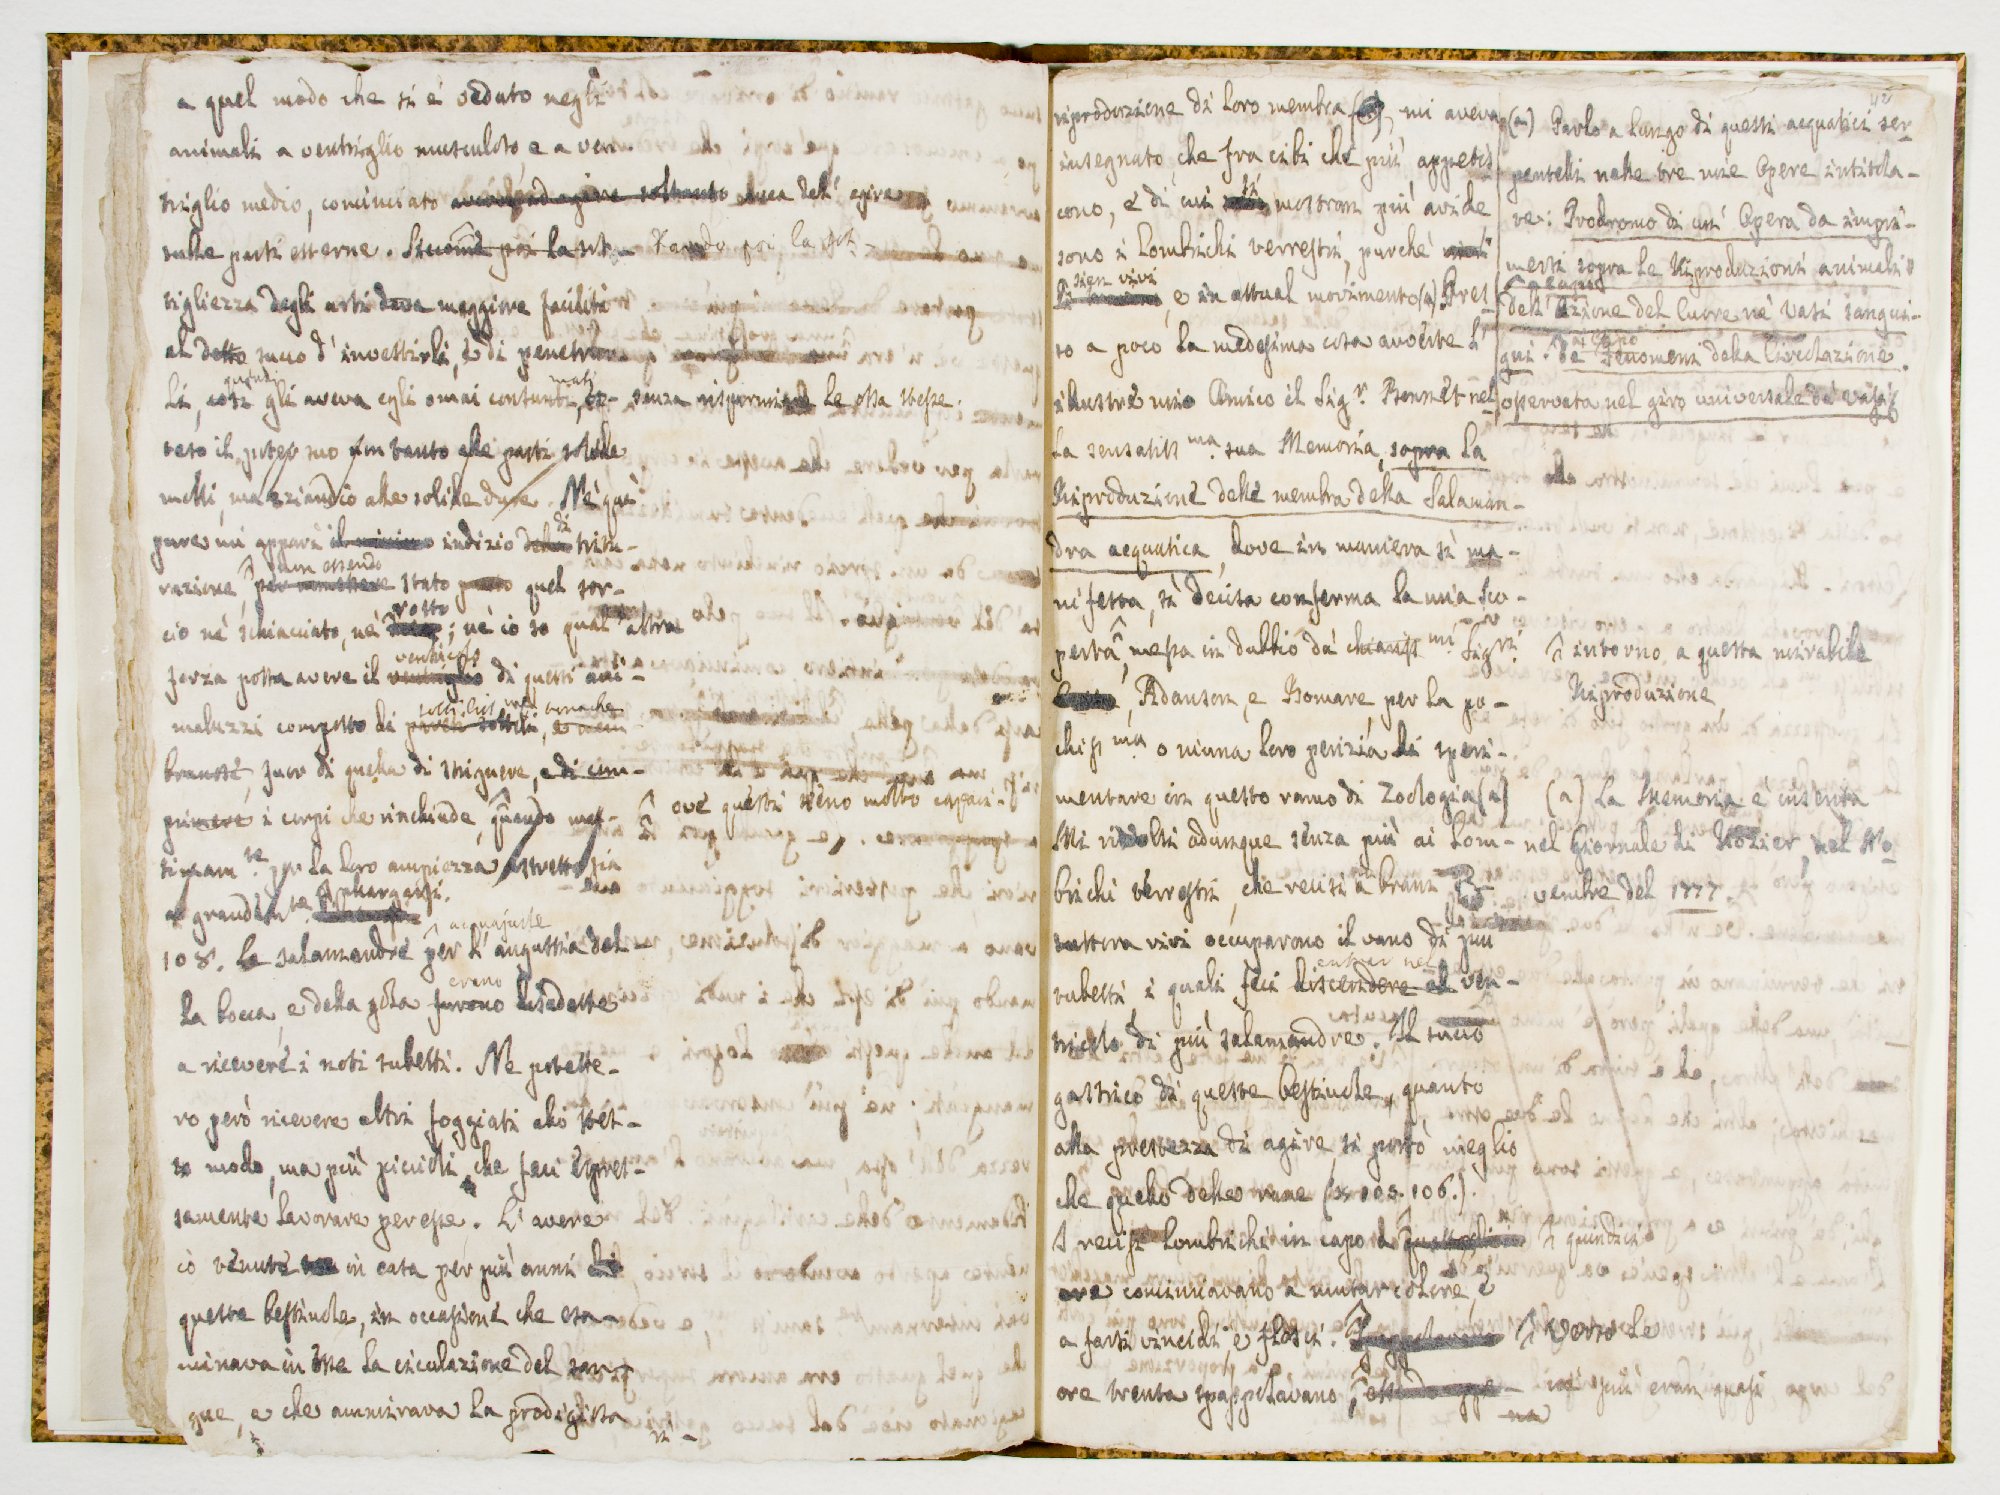 a quel modo che si è veduto negli
animali a ventriglio musculoso, e a ven-
triglio medio, cominciato ad agire soltanto dall' agire
sulle parti esterne. Siccome poi la sot- Dando poi la sot-
tigliezza degli arti dava maggiore facilità
al detto succo d' investirli, e di penetrar
li, così gli aveva egli omai consunti, senza risparmiare le ossa stesse.
teso il poter suo non tanto alle parti solide
molli, ma eziandio alle solide dure. Nè qui
pure mi apparì il minimo indizio della di tritu-
razione, non essendo per stato quel sor-
cio nè schiacciato, nè rotto; nè io so qual' altra
forza possa avere il ventricolo di questi ani-
maluzzi composto di pareti sottili, e mem
branose, fuor di quella di strignere, e di com-
primere i corpi che rinchiude, quando mas- ove questi sieno molto capaci
simam.te per la loro ampiezza
a grandem.te allargarsi.
108. Le salamandre acquajuole per l' angustia del-
la bocca, e della gola furono erano disadatte
a ricevere i noti tubetti. Ne potette-
ro però ricevere altri foggiati allo stes-
so modo, ma più piccioli, che feci espres-
samente lavorare per esse. L' avere
io tenute in casa per più anni di
queste bestiuole, in occasione che esa-
minava in esse la circolazione del san-
gue, e che ammirava la prodigiosa
ri-
42
riproduzione di loro membra, mi aveva
insegnato, che fra cibi che più appetis
cono, e di cui si mostran più avide
sono i lombrichi terrestri, purchè
sien vivi, e in attual movimento (a). Pres-
so a poco la medesima cosa avverte l'
illustre mio Amico il Sig.r Bonnet nel
la sensatiss.ma sua Memoria, sopra la
Riproduzione delle membra della Salaman-
dra acquatica, dove in maniera sì ma-
nifesta, sì decisa conferma la mia sco-
perta, messa in dubbio da chiariss.mi Sig.ri
Adanson, e Bomare, per la po-
chiss.ma o niuna loro perizia di speri-
mentare in questo ramo di Zoologia (a)
Mi rivolsi adunque senza più ai lom-
brichi terrestri, che recisi a brani
tuttora vivi occuparono il vano di più
tubetti i quali feci discendere al entrar nel ven-
tricolo di più salamandre. Il succo
gastrico di queste bestiuole, quanto
alla prestezza di agire, si portò meglio
che quello delle rane (§ 105. 106.).
I recisi lombrichi in capo a
ore cominciavano a mutar colore, e
a farsi vincidi, e flosci.
ore trenta spappolavano,
(a) Parlo a lungo di questi acquatici ser-
pentelli nelle tre mie Opere intitola-
te: Prodromo di un' Opera da impri-
mersi sopra le Riproduzioni animali
dell' Azione del Cuore ne' Vasi sangui-
gni. De' Fenomeni della Circolazione
osservata nel giro universale de' vasi
intorno a questa mirabile
Riproduzione,
(a) La Memoria è inserita
nel Giornale di Rozier, nel No
vembre del 1777.
quindici
Verso le
più eran quasi